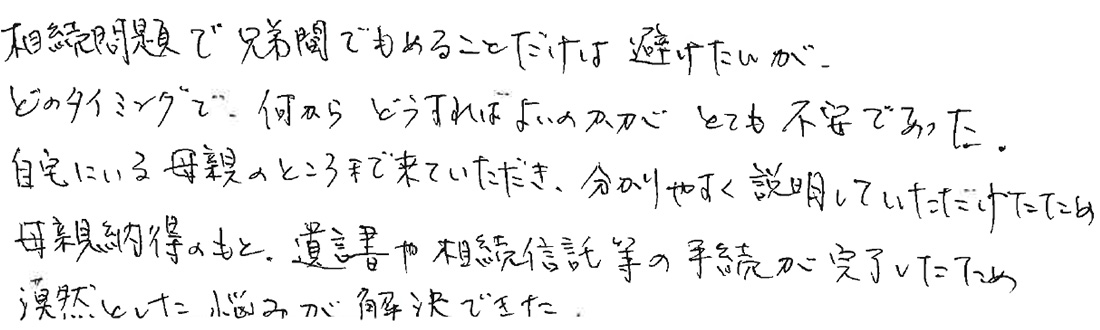 相続問題で兄弟間でもめることだけは避けたいが、
どのタイミングで、何からどうすればよいのかが とても不安であった。
自宅にいる母親のところまで来ていただき、分かりやすく説明していただけたため
母親納得のもと、遺言書や相続信託等の手続が完了したため
漠然とした悩みが解決できた。